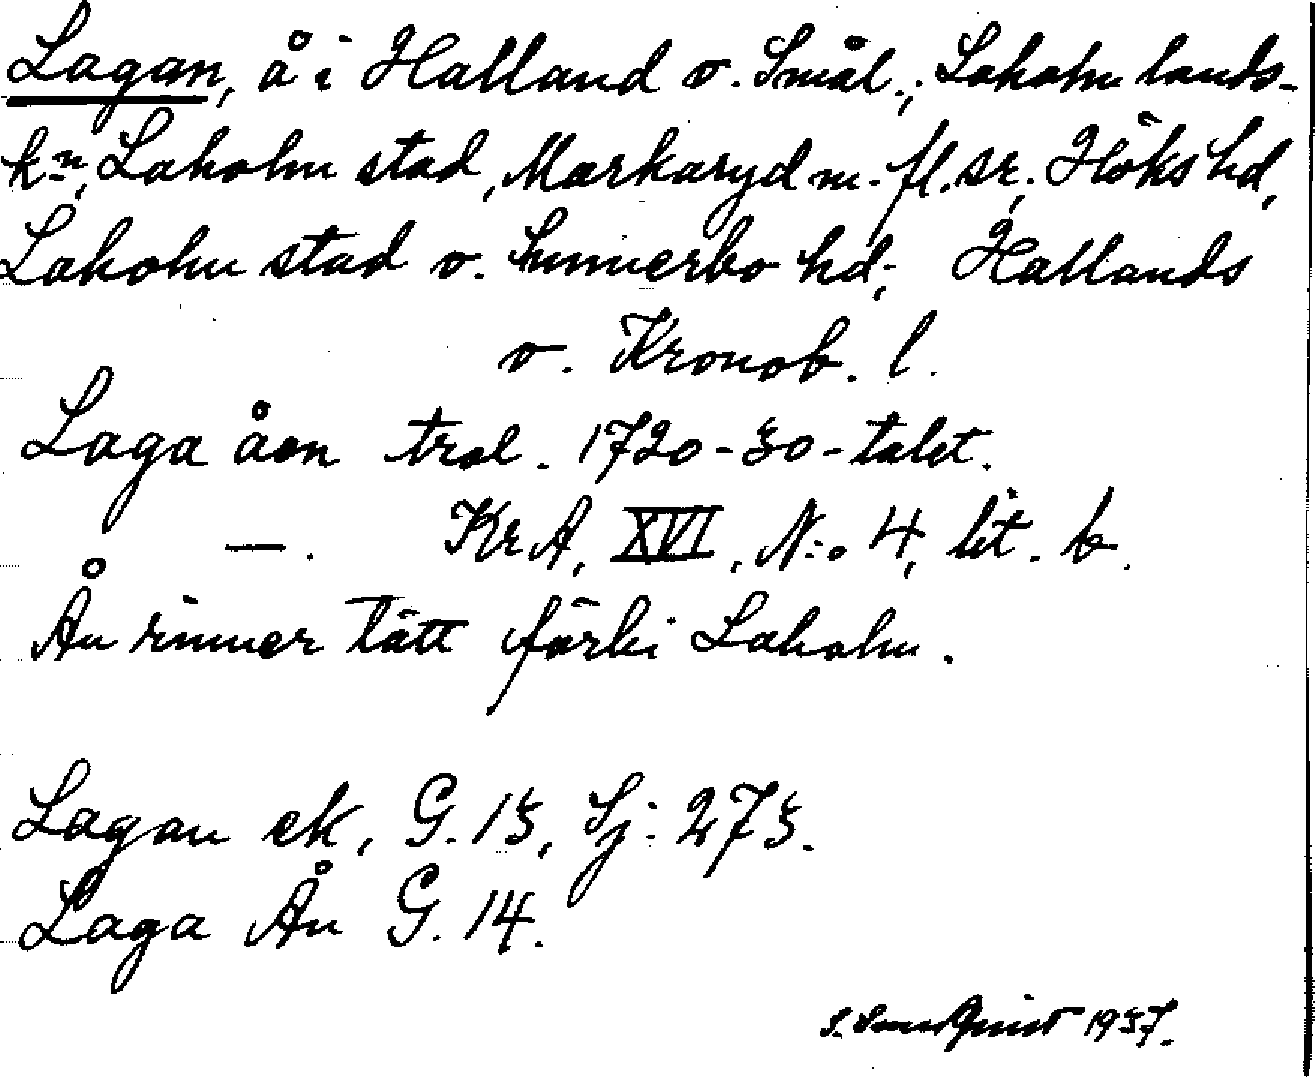 Lagan, å i Halland o. Smål.; Laholm lands-
kn, Laholm stad, Markaryd m. fl. sr. Höks hd,
Laholm stad o. Sunnerbo hd; Hallands
o. Kronob. l.
Laga åen trol. 1720-30-talet.
—. KrA, XVI, N:o 4, lit. b.
Ån rinner tätt förbi Laholm.
Lagan ek, G. 13, Sj: 273.
Laga Ån G. 14.
S. Sundquist 1937.